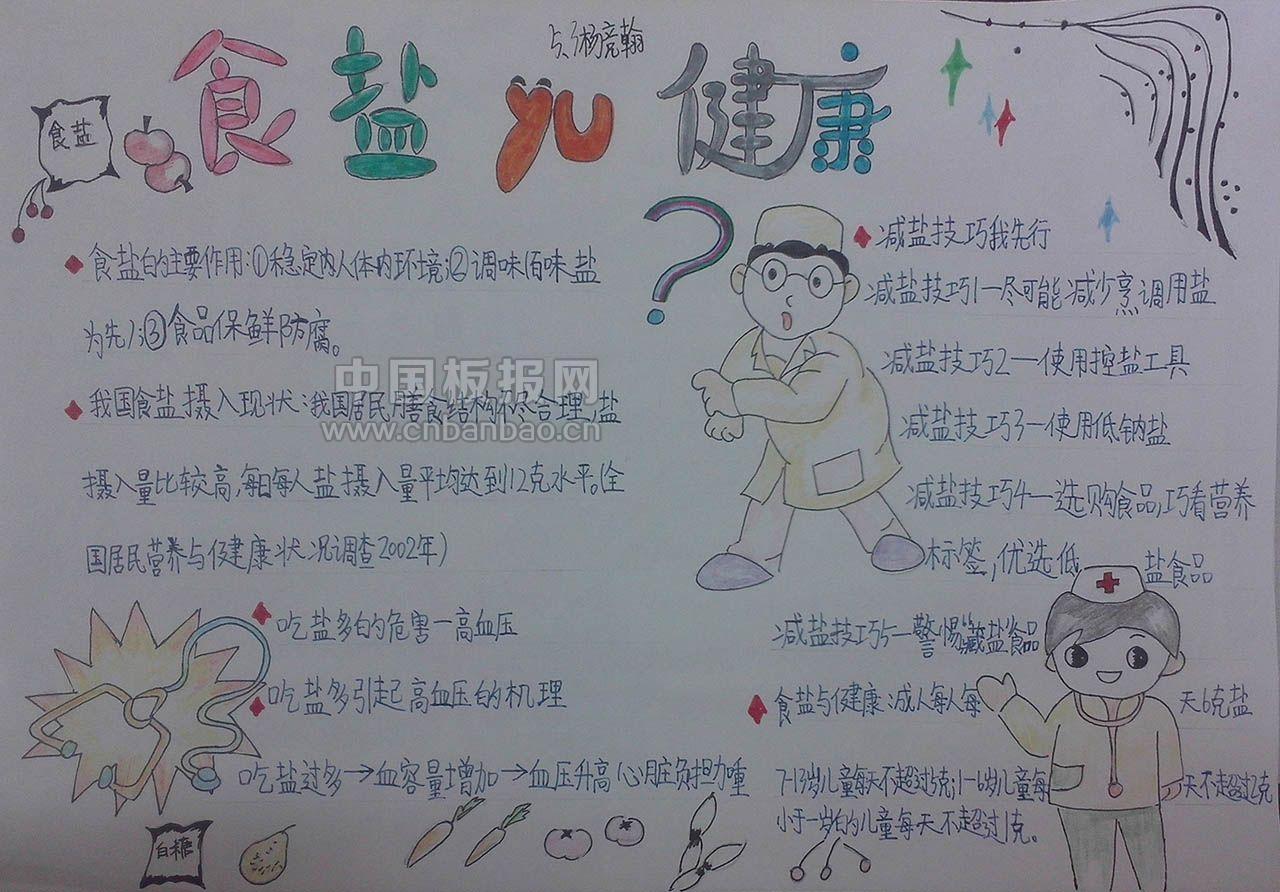 食盐yu健康
5.3杨竞翰
食盐
食盐的主要作用:①稳定内人体内环境;②调味(百味盐
为先);③食品保鲜防腐。
我国食盐摄入现状:我国居民膳食结构不尽合理,盐
摄入量比较高,每日每人盐摄入量平均达到12克水平。(全
国居民营养与健康状况调查2002年)
中国板报网
www.cnbanbao.cn
吃盐多的危害一高血压
吃盐多引起高血压的机理
吃盐过多→血容量增加→血压升高心脏负担加重
白糖
?
减盐技巧我先行
减盐技巧1一尽可能减少烹调用盐
减盐技巧2一使用控盐工具
减盐技巧3一使用低钠盐
减盐技巧4一选购食品,巧看营养
标签,优选低盐食品
减盐技巧5一警惕"藏盐食品
食盐与健康:成人每人每天6克盐
7-13岁儿童每天不超过5克;1-6岁儿童每天不超过2克
小于一岁的儿童每天不超过1克。